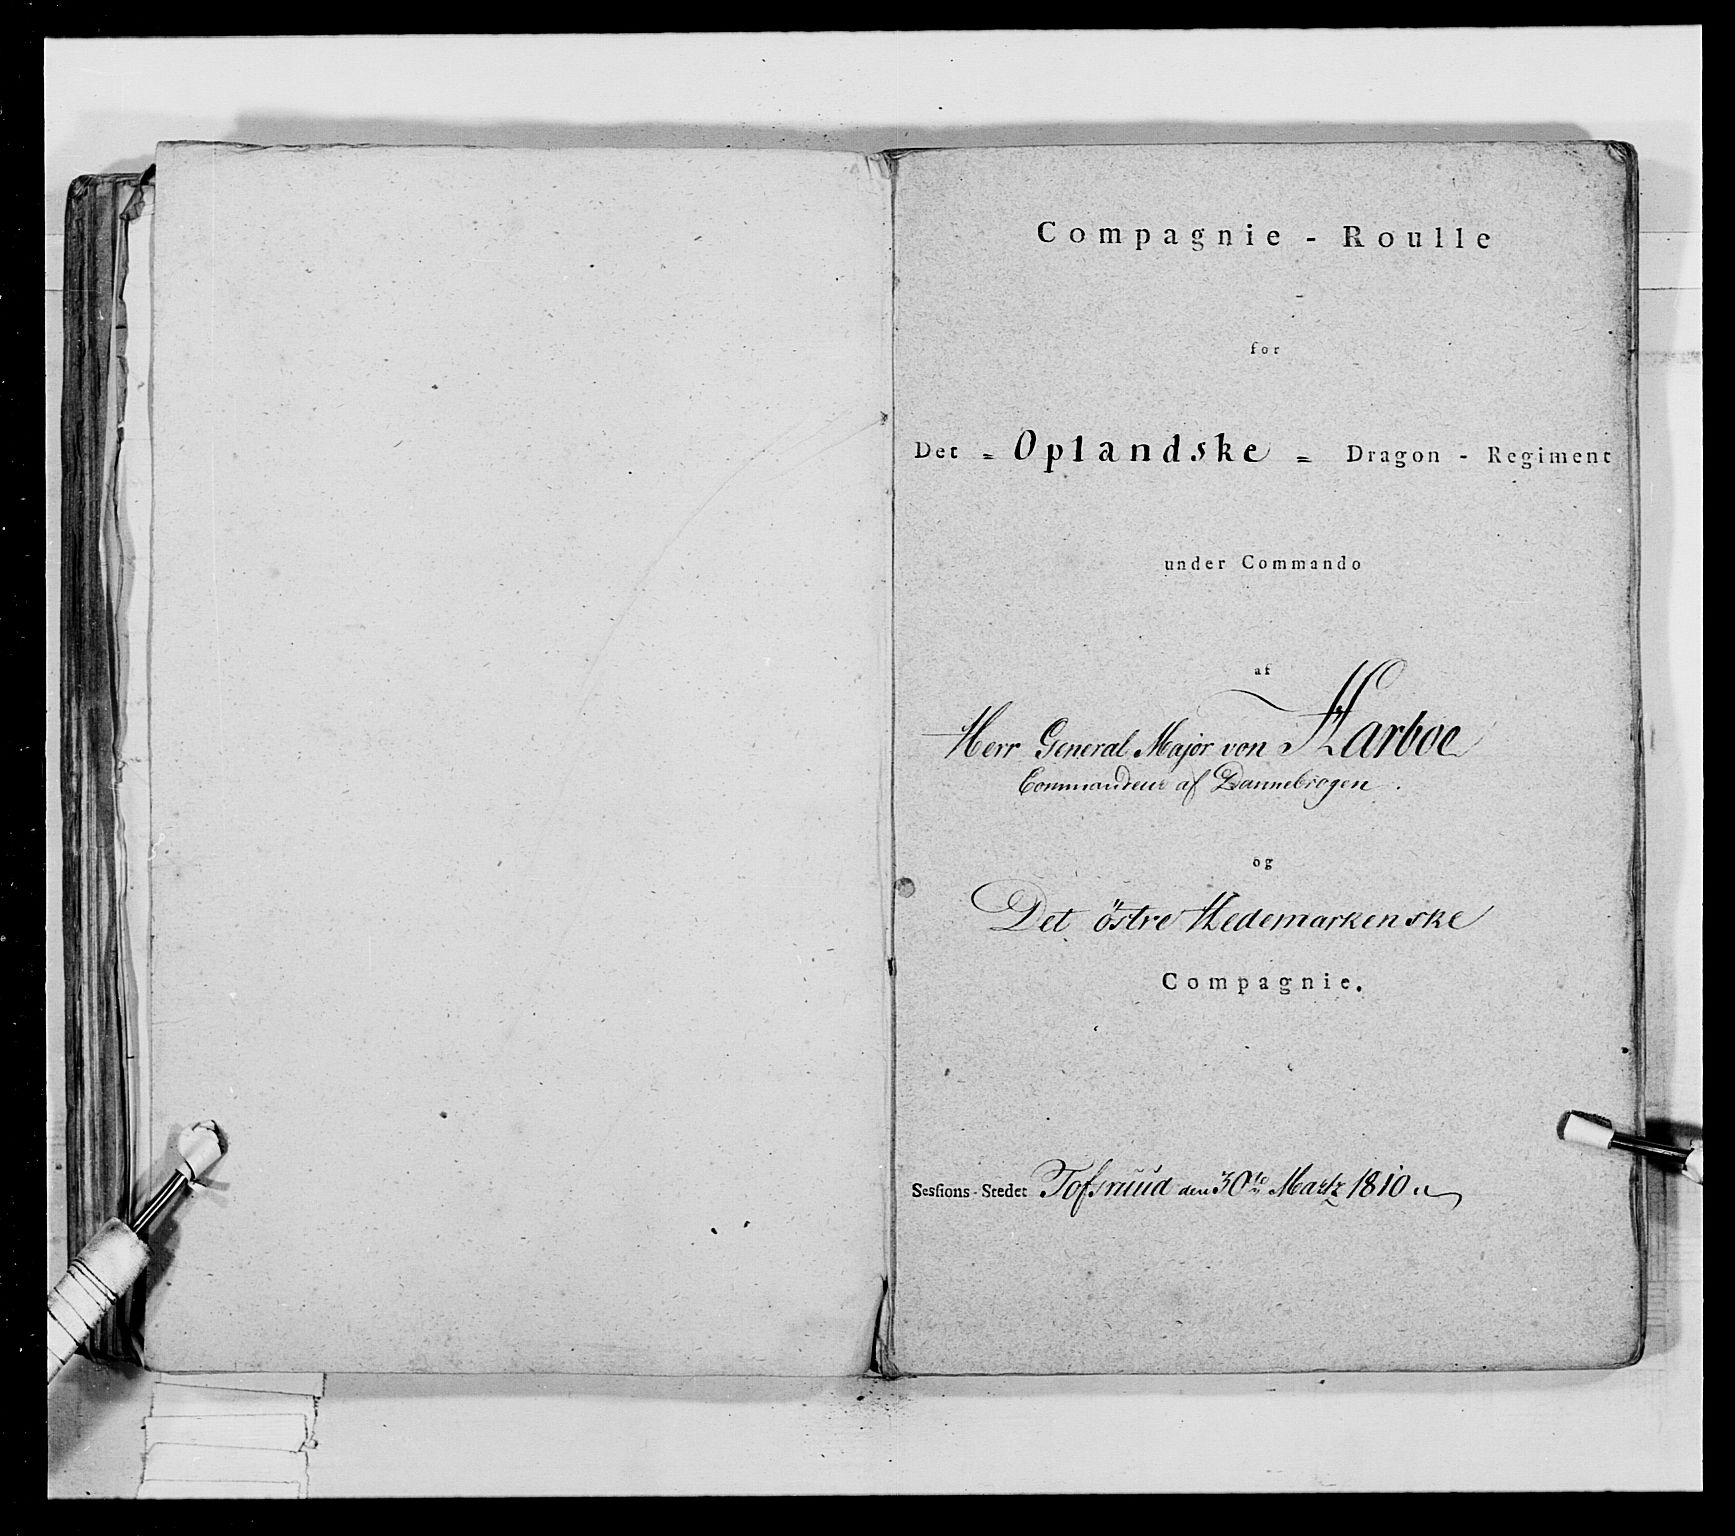 Compagnie - Roulle
for
Det = Oplandske = Dragon - Regiment
under Commando
af
Herr General Major von Harboe
Commandeur af Dannebrogen.
og
Det östre Hedemarkenske
Compagnie.
Sesſions-Stedet Tofsruud den 30te Martz 1810